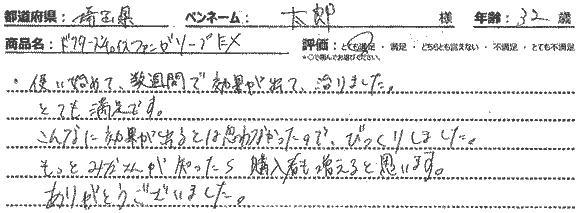 都道府県: 埼玉県 ペンネーム: 太郎 様 年齢: 32 歳
商品名: ドクターズチョイスファンガソープEX 評価: とても満足 ・ 満足 ・ どちらとも言えない ・ 不満足 ・ とても不満足
*○で囲んでお選びください。
・使い始めて、数週間で効果が出て、治りました。
とても満足です。
こんなに効果が出るとは思わなかったので、びっくりしました。
もっとみなさんが知ったら購入者も増えると思います。
ありがとうございました。